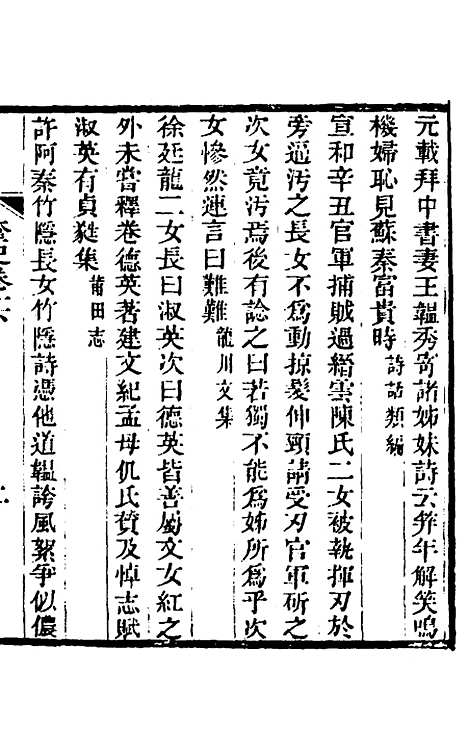 元載拜中書妻王韞秀寄諸姊妹詩云筓年解笑鳴
機婦恥見蘇秦富貴時詩話類編
宣和辛丑官軍捕賊過縉雲陳氏二女被執揮刃於
旁逼汚之長女不爲動掠髮伸頸請受刃官軍斫之
次女竟汚焉後有諗之曰若獨不能爲姊所爲乎次
女慘然連言曰難難龍川文集
徐廷龍二女長曰淑英次曰德英皆善屬文女紅之
外未嘗釋卷德英著建文紀孟母仉氏贊及悼志賦
淑英有貞蕤集莆田志
許阿秦竹隱長女竹隱詩憑他道韞誇風絮爭似儂